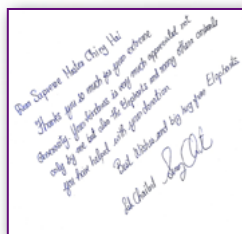 Dear Supreme Master Ching Hai
Thank you so much for your extreme
Generosity. Your kindness is very much appreciated not
only by me but also the Elephants and many other animals
you have helped with your donation.
Best Wishes and big hugs from Elephants
Lek Chailert